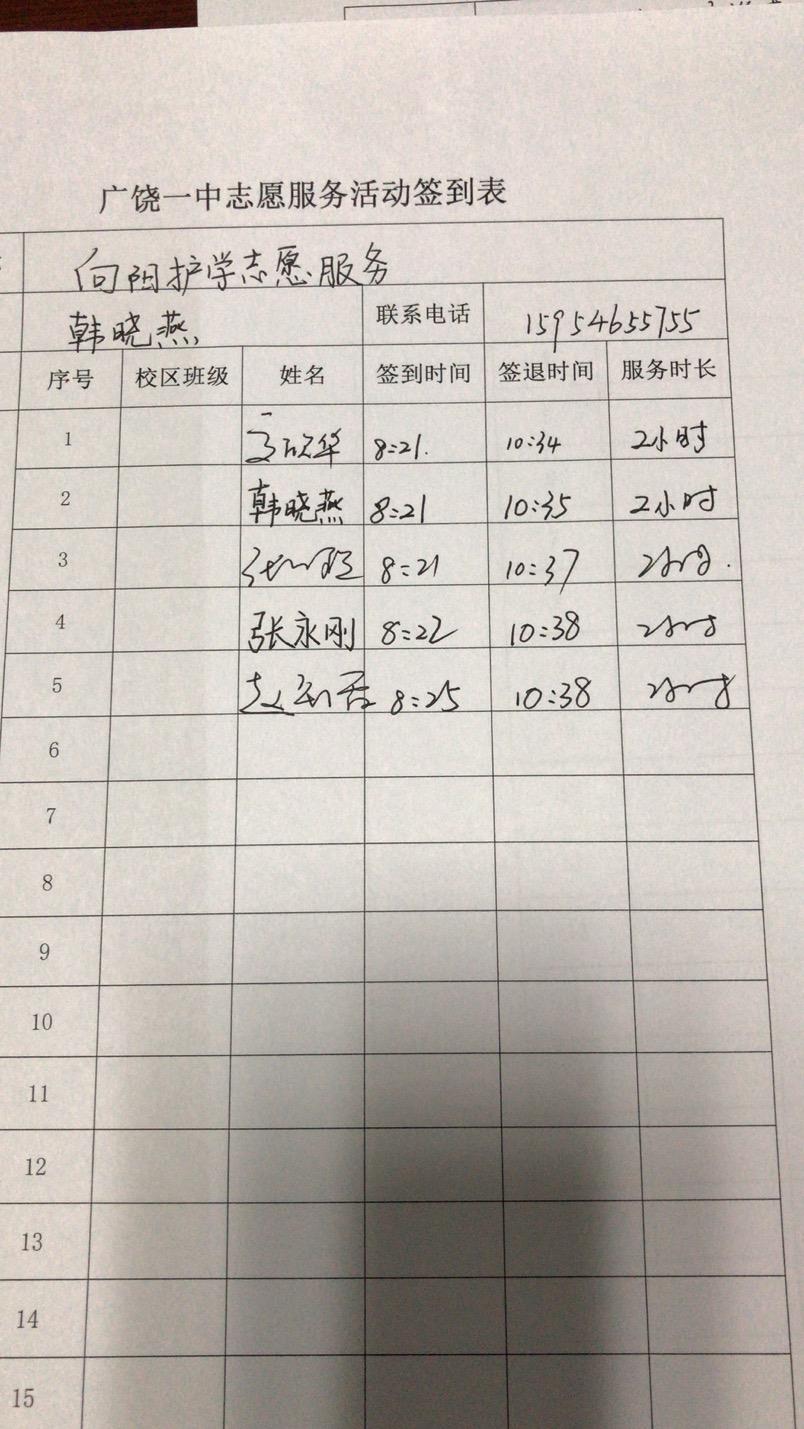 广饶一中志愿服务活动签到表
向阳护学志愿服务
韩晓燕 联系电话 15954655755
序号 校区班级 姓名 签到时间 签退时间 服务时长
1 8:21. 10:34 2小时
2 韩晓燕 8:21 10:35 2小时
3 8:21 10:37 2小时.
4 张永刚 8:22 10:38 2小时
5 8:25 10:38 2小时
6
7
8
9
10
11
12
13
14
15